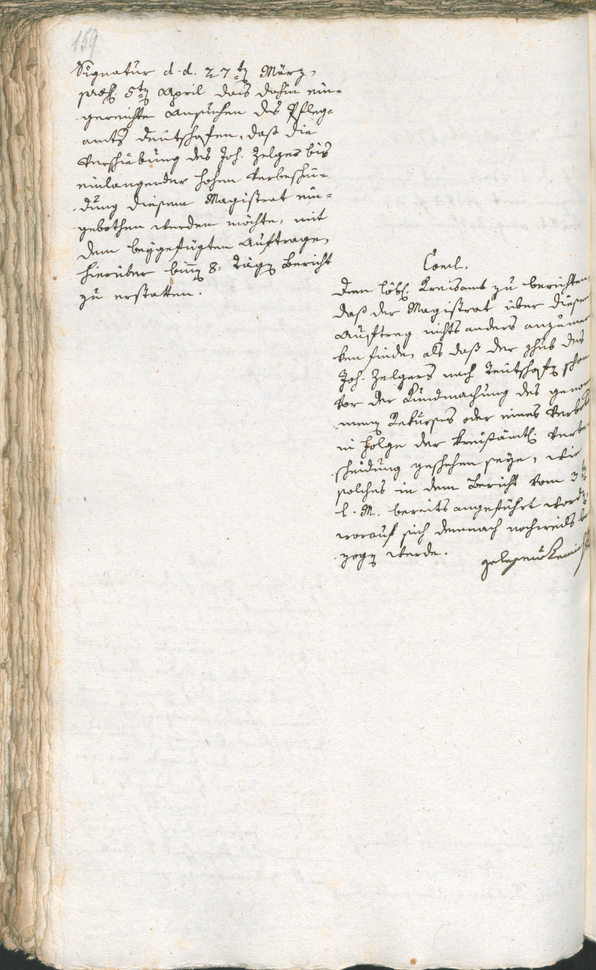 159
Signatur d. d. 27ten März,
praes. 5ten April das dahin ein-
gereichte Ansuchen des Pfleg-
amts Deutschofen, daß die
Verschiebung des Joh. Zelger bis
einlangender hohen Verbeschei-
dung diesem Magistrat ein-
gebothen werden möchte, mit
dem beygefügten Auftrage,
hierüber binnen 8. Tägen Bericht
zu erstatten.
Concl.
Dem löbl. Kreisamt zu berichten,
daß der Magistrat über diesen
Auftrag nichts anders anzumer
ken finde, als daß der Schub des
Joh. Zelgers nach Teutschofen schon
vor der Kundmachung des genom
menen Rekurses oder eines Verbots
in Folge der kreisämtl. Verbe
scheidung geschehen seye, wie
solches in dem Bericht vom 3
l. M. bereits angeführt worden,
worauf sich demnach nochmals be
zogen werde.